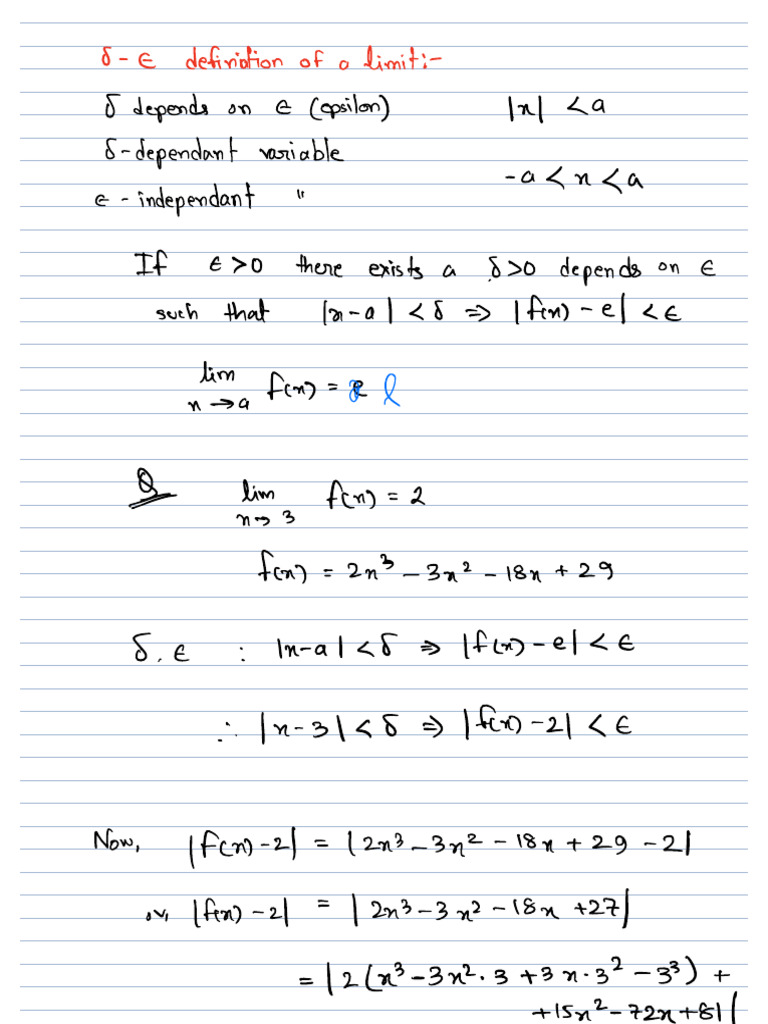 δ - ∈ definition of a limit:-
δ depends on ∈ (epsilon) |x| < a
δ-dependant variable
-a < x < a
∈ - independant "
If ∈ > 0 there exists a δ > 0 depends on ∈
such that |x-a| < δ ⇒ |f(x) - e| < ∈
lim f(x) = l
x → a
Q lim f(x) = 2
x → 3
f(x) = 2x³ - 3x² - 18x + 29
δ, ∈ : |x-a| < δ ⇒ |f(x) - e| < ∈
∴ |x-3| < δ ⇒ |f(x) - 2| < ∈
Now, |f(x) - 2| = |2x³ - 3x² - 18x + 29 - 2|
or, |f(x) - 2| = |2x³ - 3x² - 18x + 27|
= |2(x³ - 3x².3 + 3x.3² - 3³) +
+15x² - 72x + 81|